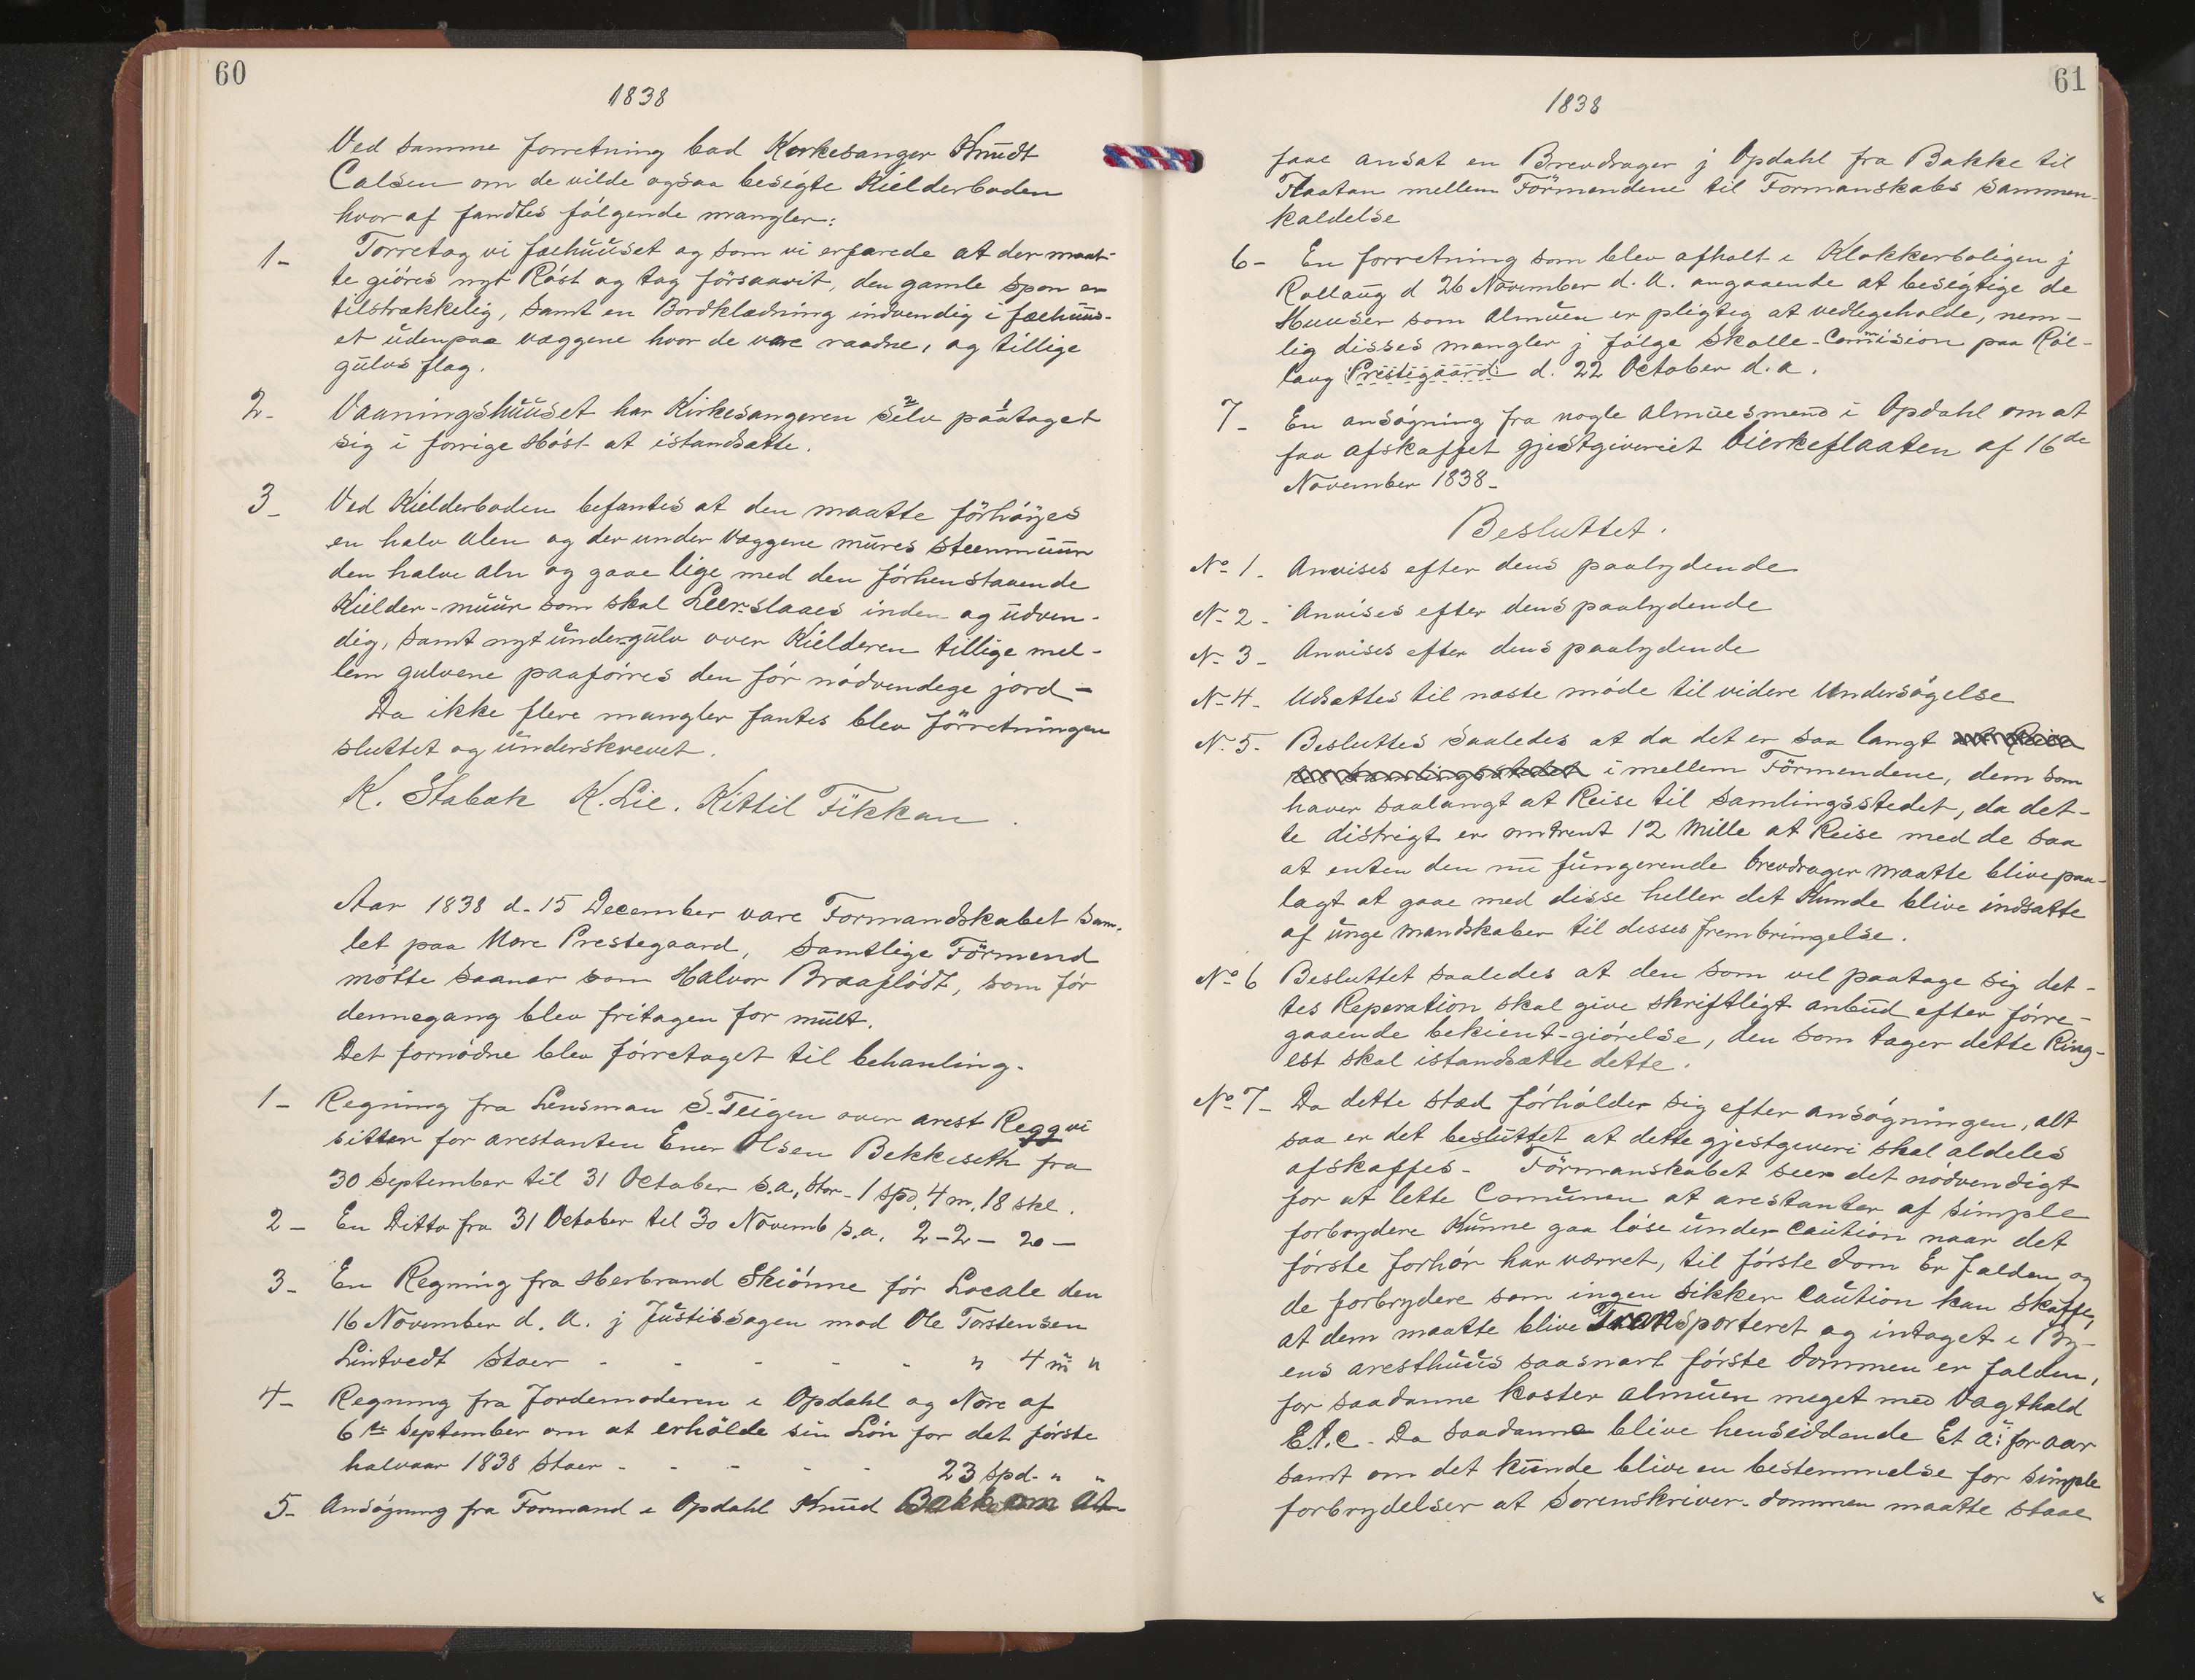 60
1838
Ved samme forretning bad Kirkesanger Knudt
Calsen om de vilde ogsaa besigte Kielderboden
hvor af fandtes følgende mangler:
1- Torretog vi fæhuuset og som vi erfarede at der maat-
te giöres nyt Röst og tag försaavit, den gamle spon er
tilstrækkelig, samt en Bordklædning indvendig i fæhuus-
et udenpaa væggene hvor de vare raadne, og tillige
gulvs flag.
2- Vaaningshuuset har Kirkesangeren selv paataget
sig i forrige Höst at istandsætte.
3- Ved Kielderboden befantes at den maatte förhöyes
en halv Alen og der under Væggene mures steenmuur
den halve Aln og gaae lige med den förhenstaaende
Kielder-muur som skal Leer-slaaes inden og udven-
dig, samt nyt undergulv over Kielderen tillige mel-
lem gulvene paaföres den för nödvendege jord-
Da ikke flere mangler fantes blev förretningen
sluttet og underskrevet.
K. Stabæk K. Lie. Kittil Fikkan.
Aar 1838 d. 15 December vare Formandskabet sam-
let paa Nore Prestegaard, samtlige Förmænd
mötte saanær som Halvor Braaflödt, som för
dennegang blev fritagen for mult.
Det fornödne blev förretaget til behanling.
1- Regning fra Lensman S. Teigen over arest Reqqvi
sitter for arestanten Ener Olsen Bekkeseth fra
30 September til 31 October s.a., stor- 1 spd, 4 m, 18 skl.
2- En Ditto fra 31 October til 30 Novemb s.a. 2-2- 20-
3- En Regning fra Herbrand Skiönne för Locale den
16 November d. A. j Justissagen mod Ole Torstensen
Lintvedt staer - - - - - " 4 m "
4- Regning fra Jordemoderen i Opdahl og Nore af
6te September om at erhölde sin Lön for det förste
halvaar 1838 staer - - - - - 23 spd. " "
5- Ansögning fra Formand i Opdahl Knud Bakke om at
61
1838
faae ansat en Brevdrager j Opdahl fra Bakke til
Flaatan mellem Förmendene til Formanskabs sammen-
kaldelse
6- En forretning som blev afholt i Klokkerboligen j
Rollaug d 26 November d. A. angaaende at besigtige de
Huuser som Almuen er pligtig at vedlegeholde, nem-
lig disses mangler j fölge Skolle-Commision paa Röl-
laug Prestigaard d. 22 October d.a.
7- En ansögning fra nogle Almuesmend i Opdahl om at
faa afskaffet gjestgiveriet Bierkeflaaten af 16de
November 1838-
Besluttet.
No 1- Anvises efter dens paalydende
No 2- Anvises efter dens paalydende
No 3- Anvises efter dens paalydende
No 4- Udsættes til næste möde til videre Undersögelse
No 5- Besluttes saaledes at da det er saa langt
i mellem Förmendene, dem som
haver saalangt at Reise til samlingsstedet, da det-
te distrigt er omtrent 12 Mille at Reise med de saa
at enten den nu fungerende brevdrager maatte blive paa-
lagt at gaae med disse heller det Kunde blive indsatte
af unge mandskaber til desses frembringelse.
No 6 Besluttet saaledes at den som vil paatage sig det-
tes Reperation skal give skriftligt anbud efter förre-
gaaende bekient-giörelse, den som tager dette Ring-
est skal istandsætte dette.
No 7- Da dette stæd förhölder sig efter ansögningen, alt
saa er det besluttet at dette gjestgeveri skal aldeles
afskaffes- Förmanskabet seer det nödvendigt
for at lette Comunen at arestanter af simple
forbrydere Kunne gaa löse under Caution naar det
förste forhör har værret, til förste dom Er falden, og
de forbrydere som ingen sikker Caution kan skaffe,
at dem maatte blive Transporteret og intaget i By-
ens aresthuus saasnart förste dommen er falden,
for saadanne koster Almuen meget med Vagthold
Et.c- Da saadanne blive hensiddande Et a: for aar
samt om det kunde blive en bestemmelse for simple
forbrydelser at Sorenskriver-dommen maatte staae